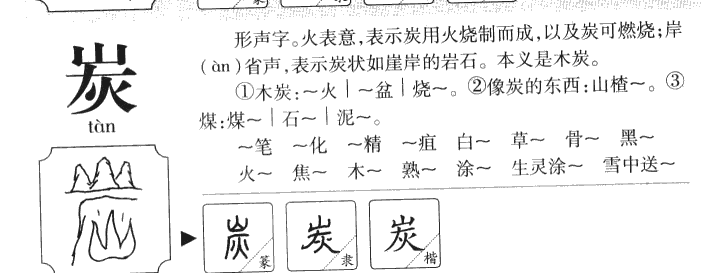 炭
tàn
形声字。火表意,表示炭用火烧制而成,以及炭可燃烧;岸
(àn)省声,表示炭状如崖岸的岩石。本义是木炭。
①木炭:～火｜～盆｜烧～。②像炭的东西:山楂～。③
煤:煤～｜石～｜泥～。
～笔 ～化 ～精 ～疽 白～ 草～ 骨～ 黑～
火～ 焦～ 木～ 熟～ 涂～ 生灵涂～ 雪中送～
炭 篆 炭 隶 炭 楷